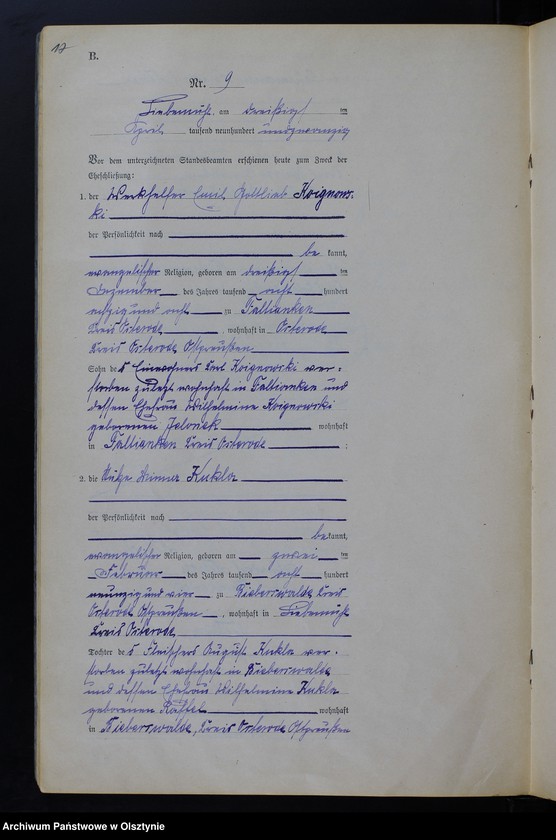 12
B.
Nr. 9
Liebemühl am dreißigsten
April tausend neunhundert undzwanzig
Vor dem unterzeichneten Standesbeamten erschienen heute zum Zweck der
Eheschließung:
1. der Emil Gottlieb Koignows-
ki
der Persönlichkeit nach
be kannt,
evangelischer Religion, geboren am dreißigsten
Dezember des Jahres tausend acht hundert
achtzigund acht zu
Kreis Osterode, wohnhaft in Osterode
Kreis Osterode Ostpreußen
Sohn des Einwohners Karl Koignowski ver-
storben zuletzt wohnhaft in und
dessen Ehefrau Wilhelmine Koignowski
geborenen wohnhaft
in Kreis Osterode ;
2. die Kukla
der Persönlichkeit nach
bekannt,
evangelischer Religion, geboren am zwei
Februar des Jahres tausend acht hundert
neunzig und vier zu Bieberswalde Kreis
Osterode Ostpreußen, wohnhaft in Liebemühl
Kreis Osterode
Tochter des Fleischers August Kukla ver-
storben zuletzt wohnhaft in Bieberswalde
und dessen Ehefrau Wilhelmine Kukla
geborenen wohnhaft
in Bieberswalde, Kreis Osterode Ostpreußen
Archiwum Państwowe w Olsztynie